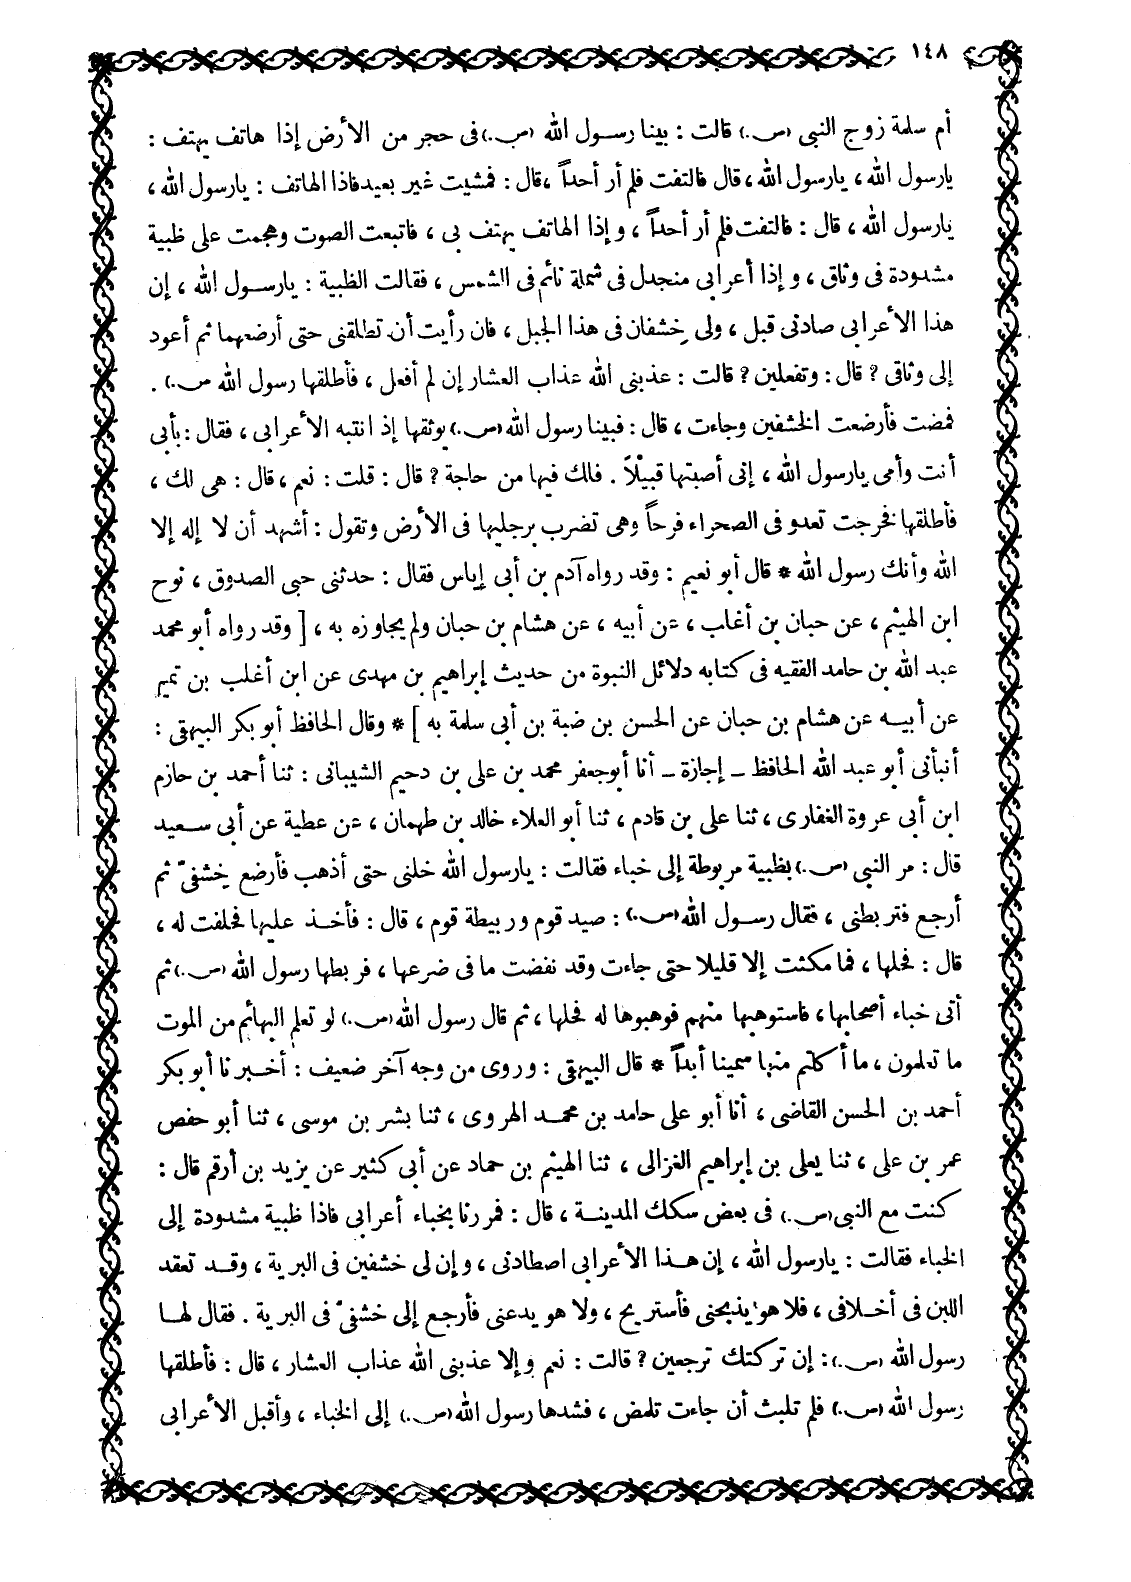 ١٤٨
أم سلمة زوج النبى (ص.) قالت : بينا رسول الله (ص.) فى حجر من الأرض إذا هاتف يهتف :
يارسول الله ، يارسول الله ، قال فالتفت فلم أر أحداً ، قال : فمشيت غير بعيد فاذا الهاتف : يارسول الله ،
يارسول الله ، قال : فالتفت فلم أر أحداً ، وإذا الهاتف يهتف بى ، فاتبعت الصوت وهجمت على ظبية
مشدودة فى وثاق ، وإذا أعرابى منجدل فى شملة نائم فى الشمس ، فقالت الظبية : يارسول الله ، إن
هذا الأعرابى صادنى قبل ، ولى خشفان فى هذا الجبل ، فان رأيت أن تطلقنى حتى أرضعهما ثم أعود
إلى وثاقى ? قال : وتفعلين ? قالت : عذبنى الله عذاب العشار إن لم أفعل ، فأطلقها رسول الله ص.) .
فمضت فأرضعت الخشفين وجاءت ، قال : فبينا رسول الله (ص.) يوثقها إذ انتبه الأعرابى ، فقال : بأبى
أنت وأمى يارسول الله ، إنى أصبتها قبيلاً . فلك فيها من حاجة ? قال : قلت : نعم ، قال : هى لك ،
فأطلقها فخرجت تعدو فى الصحراء فرحاً وهى تضرب برجليها فى الأرض وتقول : أشهد أن لا إله إلا
الله وأنك رسول الله * قال أبو نعيم : وقد رواه آدم بن أبى إياس فقال : حدثنى حبى الصدوق ، نوح
ابن الهيثم ، عن حبان بن أغلب ، عن أبيه ، عن هشام بن حبان ولم يجاوزه به ، [ وقد رواه أبو محمد
عبد الله بن حامد الفقيه فى كتابه دلائل النبوة من حديث إبراهيم بن مهدى عن ابن أغلب بن تميم
عن أبيه عن هشام بن حبان عن الحسن بن ضبة بن أبى سلمة به ] * وقال الحافظ أبو بكر البيهقى :
أنبأنى أبو عبد الله الحافظ - إجازة - أنا أبو جعفر محمد بن على بن دحيم الشيبانى : ثنا أحمد بن حازم
ابن أبى عروة الغفارى ، ثنا على بن قادم ، ثنا أبو العلاء خالد بن طهمان ، عن عطية عن أبى سعيد
قال : مر النبى (ص.) بظبية مربوطة إلى خباء فقالت : يارسول الله خلنى حتى أذهب فأرضع خشفىّ ثم
أرجع فتربطنى ، فقال رسول الله (ص.) : صيد قوم وربيطة قوم ، قال : فأخذ عليها فحلفت له ،
قال : فحلها ، فما مكثت إلا قليلا حتى جاءت وقد نفضت ما فى ضرعها ، فربطها رسول الله (ص.) ثم
أتى خباء أصحابها ، فاستوهبها منهم فوهبوها له فحلها ، ثم قال رسول الله (ص.) لو تعلم البهائم من الموت
ما تعلمون ، ما أكلتم منها سمينا أبداً * قال البيهقى : وروى من وجه آخر ضعيف : أخبرنا أبو بكر
أحمد بن الحسن القاضى ، أنا أبو على حامد بن محمد الهروى ، ثنا بشر بن موسى ، ثنا أبو حفص
عمر بن على ، ثنا يعلى بن إبراهيم الغزالى ، ثنا الهيثم بن حماد عن أبى كثير عن يزيد بن أرقم قال :
كنت مع النبى (ص.) فى بعض سكك المدينة ، قال : فمررنا بخباء أعرابى فاذا ظبية مشدودة إلى
الخباء فقالت : يارسول الله ، إن هذا الأعرابى اصطادنى ، وإن لى خشفين فى البرية ، وقد تعقد
اللبن فى أخلافى ، فلا هو يذبحنى فأستريح ، ولا هو يدعنى فأرجع إلى خشفىّ فى البرية . فقال لها
رسول الله (ص.) : إن تركتك ترجعين ? قالت : نعم وإلا عذبنى الله عذاب العشار ، قال : فأطلقها
رسول الله (ص.) فلم تلبث أن جاءت تلمض ، فشدها رسول الله (ص.) إلى الخباء ، وأقبل الأعرابى